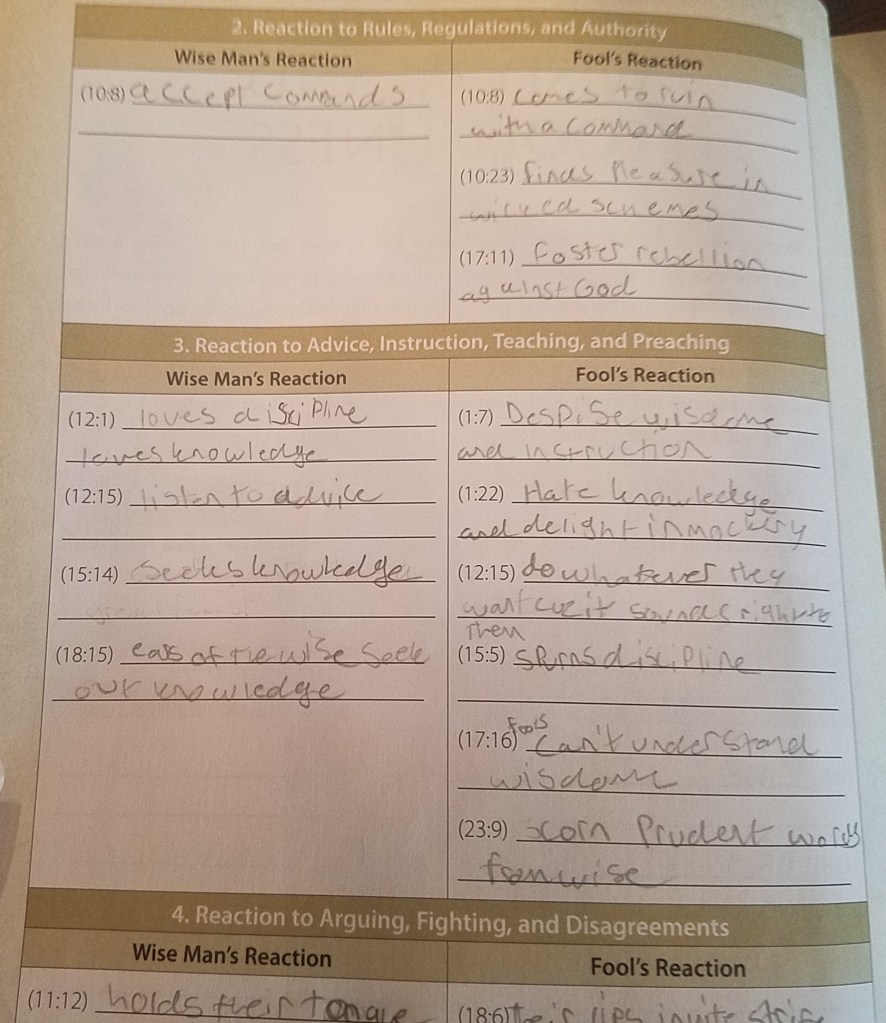 2. Reaction to Rules, Regulations, and Authority
Wise Man's Reaction
(10:8) accept commands
Fool's Reaction
(10:8) comes to ruin
with a command
(10:23) finds pleasure in
wicked schemes
(17:11) foster rebellion
against God
3. Reaction to Advice, Instruction, Teaching, and Preaching
Wise Man's Reaction
(12:1) loves discipline
loves knowledge
(12:15) listen to advice
(15:14) seeks knowledge
(18:15) ears of the wise seek
out knowledge
Fool's Reaction
(1:7) Despise wisdome
and instruction
(1:22) Hate knowledge
and delight in mockery
(12:15) do whatever they
want cuz it sounds right to
them
(15:5) spurns discipline
fools
(17:16) can't understand
wisdome
(23:9) scorn prudent words
wise
4. Reaction to Arguing, Fighting, and Disagreements
Wise Man's Reaction
(11:12) holds their tongue
Fool's Reaction
(18:6) their lips invite strife